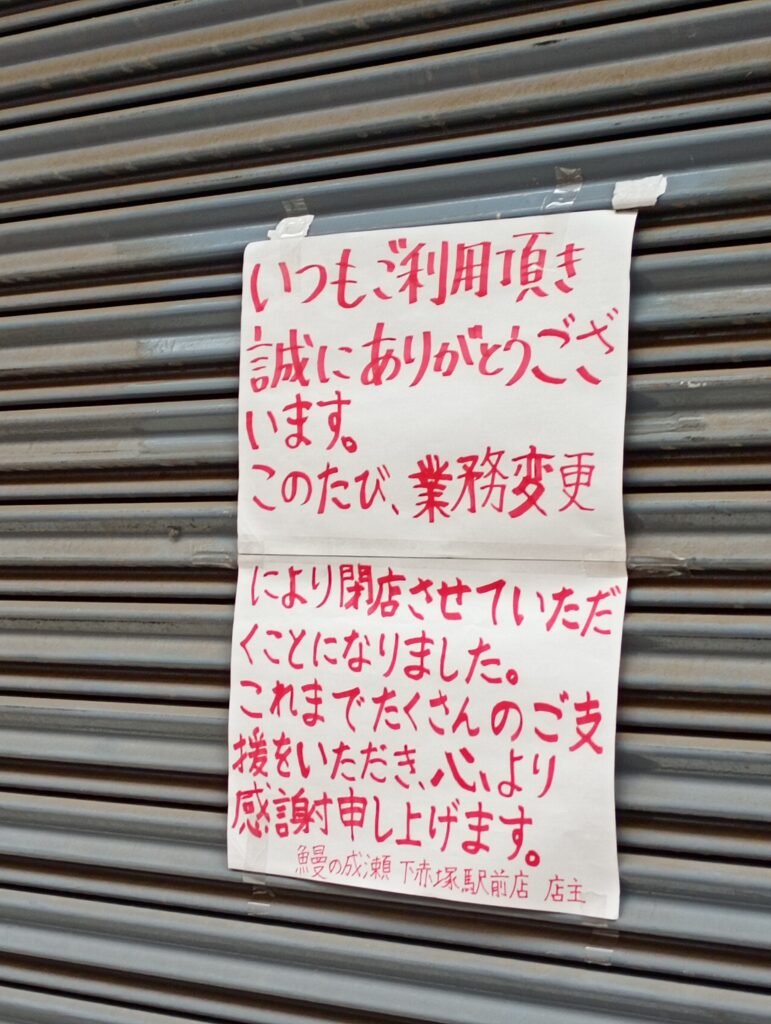 いつもご利用頂き
誠にありがとうござ
います。
このたび、業務変更
により閉店させていただ
くことになりました。
これまでたくさんのご支
援をいただき、心より
感謝申し上げます。
鰻の成瀬 下赤塚駅前店 店主